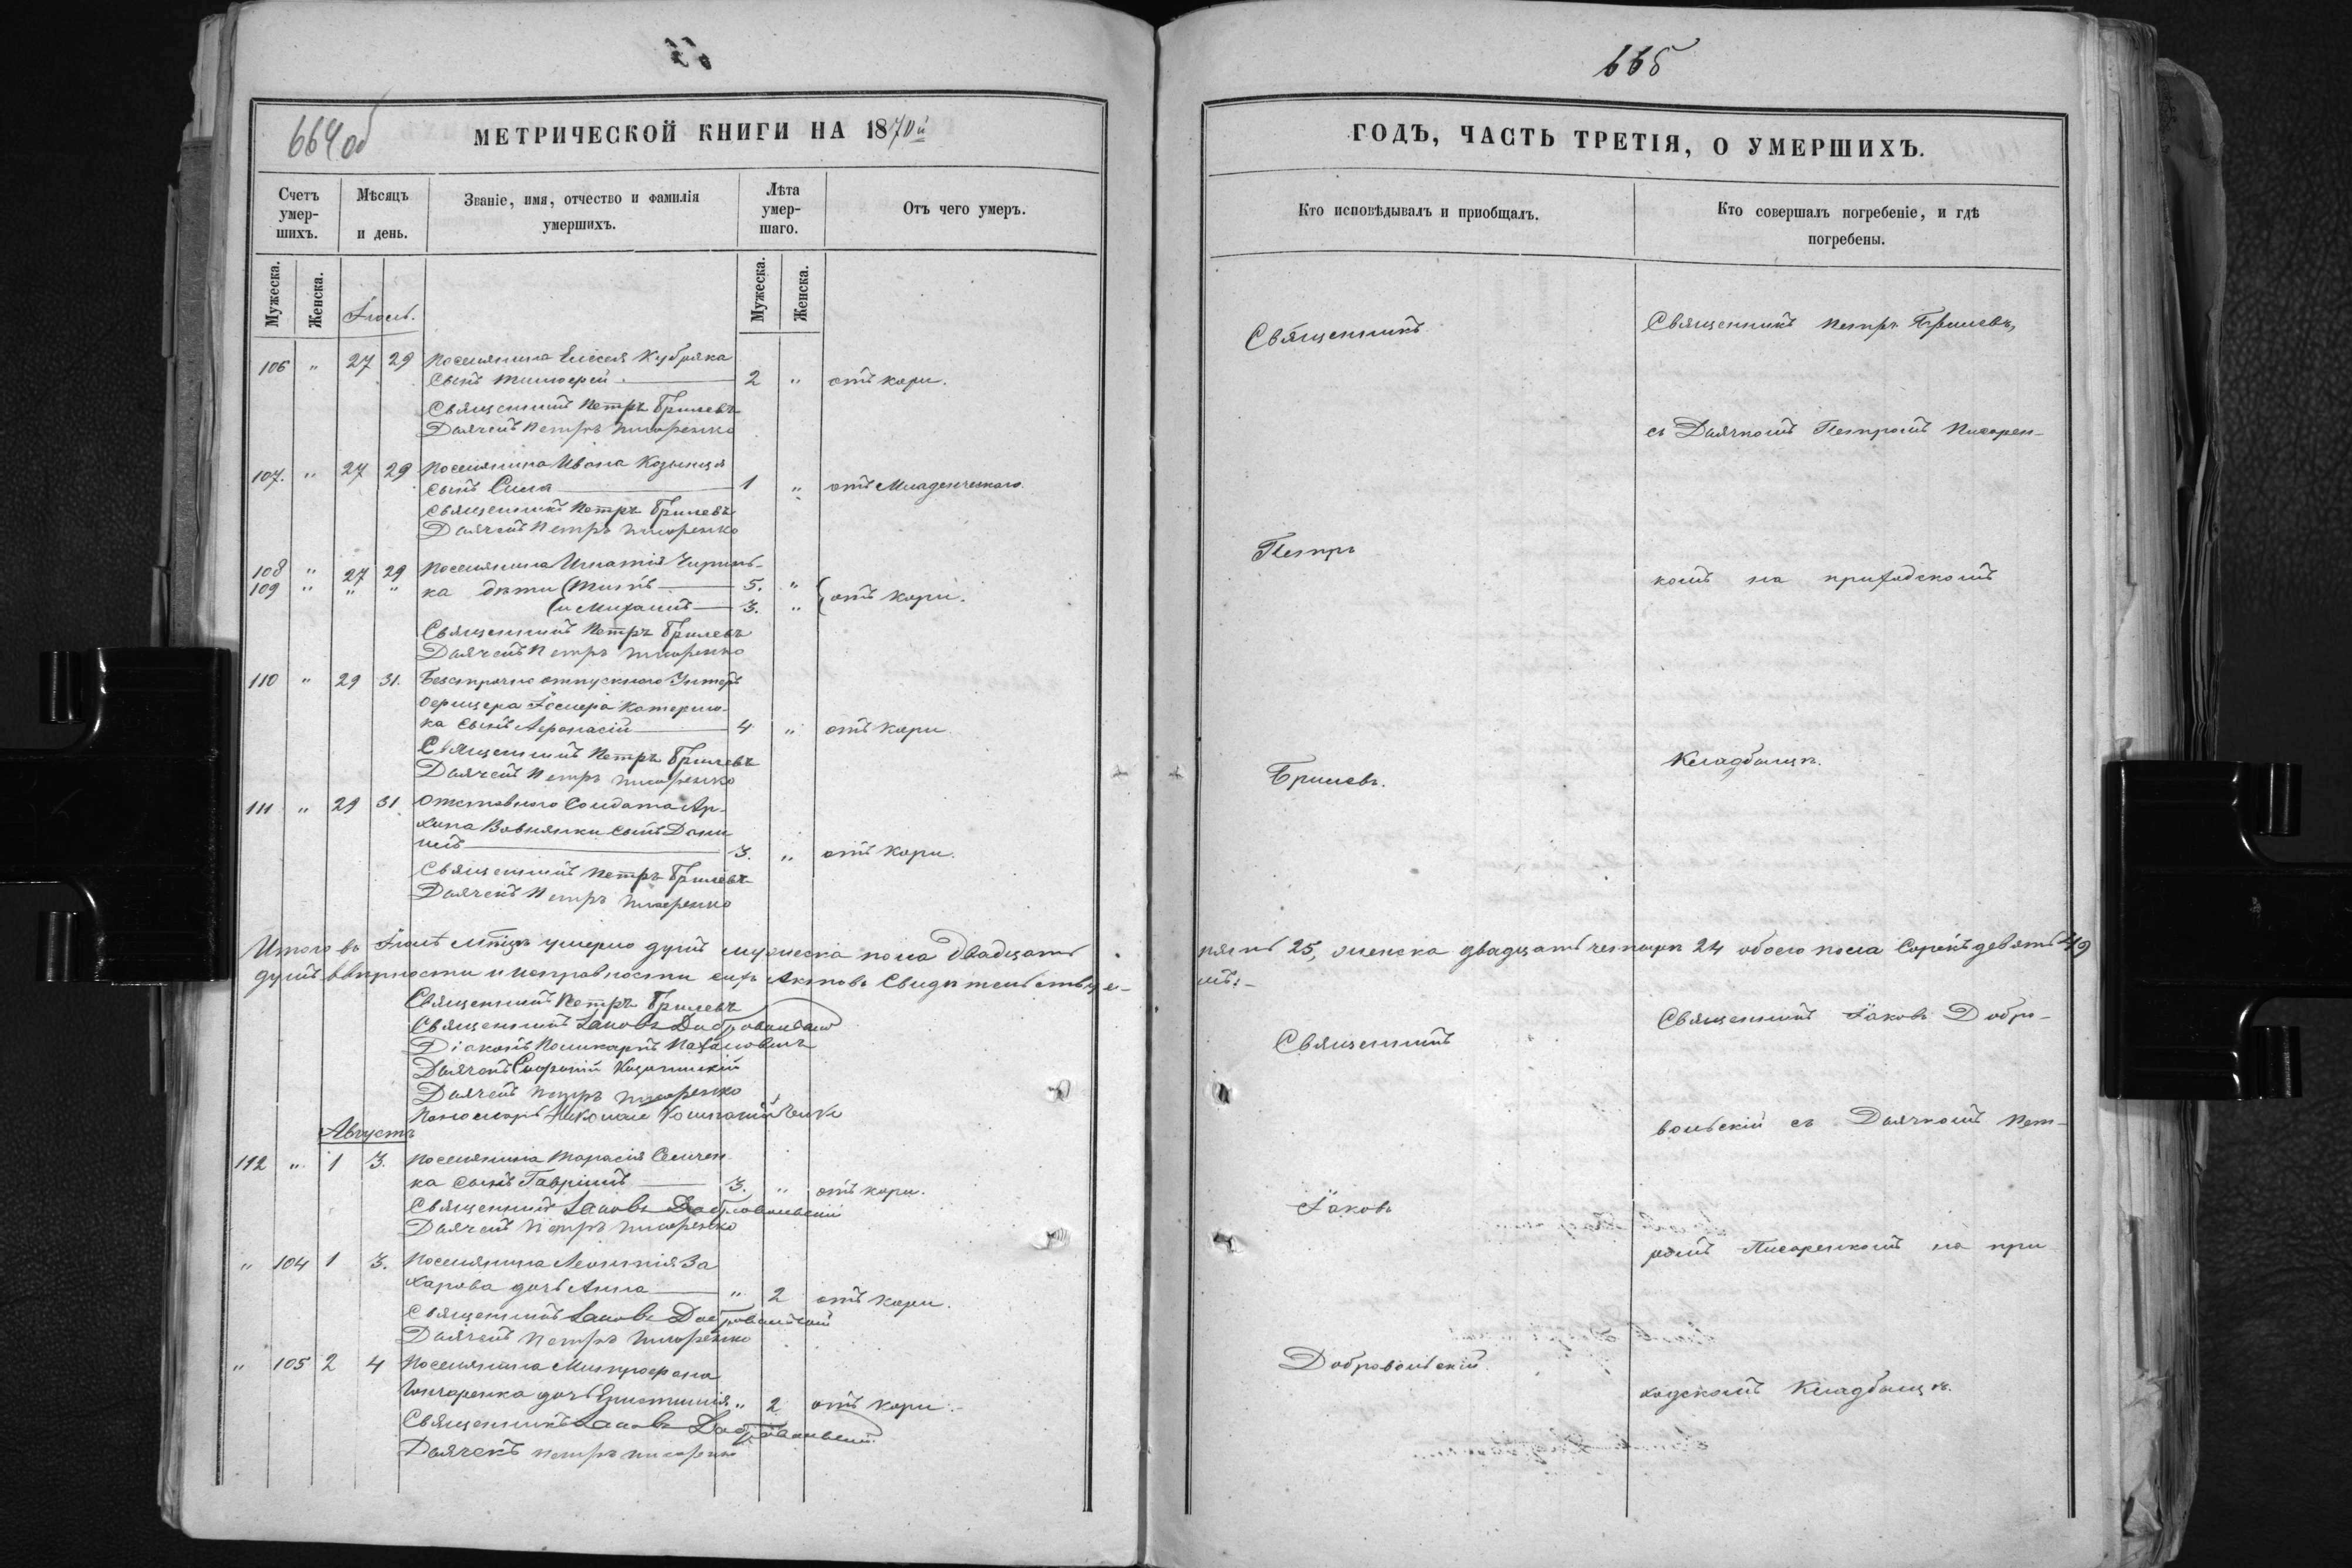 664об
МЕТРИЧЕСКОЙ КНИГИ НА 1870й
Счетъ умер-шихъ.
Мѣсяцъ и день.
Званіе, имя, отчество и фамилія умершихъ.
Лѣта умер-шаго.
Отъ чего умеръ.
Мужеска.
Женска.
Мужеска.
Женска.
Іюль.
106 " 27 29 Поселянина Елисея Кубрака
сынъ Тимофей. 2 " отъ кори.
Священникъ Петръ Брилевъ
Дьячекъ Петръ Писаренко
107. " 27 29 Поселянина Ивана Козинця
сынъ Сила 1 " отъ Младенческаго.
Священникъ Петръ Брилевъ
Дьячекъ Петръ Писаренко
108 " 27 29 Поселянина Игнатія
109 " " " ка дѣти (Титъ 5. "
(и Михаилъ 3. " отъ кори.
Священникъ Петръ Брилевъ
Дьячекъ Петръ Писаренко
110 " 29 31. Безсрочно отпускного Унтеръ
офицера Іосифа Катерино-
ка сынъ Афанасій 4 " отъ кори
Священникъ Петръ Брилевъ
Дьячекъ Петръ Писаренко
111 " 29 31 Отставного Солдата Ар-
хипа Вовнянки сынъ Дани
илъ 3. " отъ кори.
Священникъ Петръ Брилевъ
Дьячекъ Петръ Писаренко
Итого въ Іюлѣ мѣсяцѣ умерло душъ мужеска пола двадцать
душъ въ вѣрности и исправности сихъ Актовъ Свидѣтельствуе-
Священникъ Петръ Брилевъ
Священникъ Іаковъ Добровольскій
Діаконъ Поликарпъ
Дьячекъ Софроній
Дьячекъ Петръ Писаренко
Пономарь Николай
Августъ
112 " 1 3. Поселянина Тарасія Семчен
ка сынъ Гавріилъ 3. " отъ кори.
Священникъ Іаковъ Добровольскій
Дьячекъ Петръ Писаренко
" 104 1 3. Поселянина Леонтія За
харова дочь Анна " 2 отъ кори.
Священникъ Іаковъ Добровольскій
Дьячекъ Петръ Писаренко
" 105 2 4 Поселянина Митрофана
Гончаренка дочь " 2 отъ кори.
Священникъ Іаковъ Добровольскій
Дьячекъ Петръ Писаренко
665
ГОДЪ, ЧАСТЬ ТРЕТІЯ, О УМЕРШИХЪ.
Кто исповѣдывалъ и пріобщалъ.
Кто совершалъ погребеніе, и гдѣ погребены.
Священникъ
Петръ
Брилевъ.
Священникъ Петръ Брилевъ,
съ Дьячкомъ Петромъ Писарен-
комъ на приходскомъ
Кладбищѣ.
пять 25, женска двадцать четыри 24 обоего пола Сорокъ девять 49
мъ:-
Священникъ
Іаковъ
Добровольскій.
Священникъ Іаковъ Добро-
вольскій съ Дьячкомъ Пет-
ромъ Писаренкомъ на при
ходскомъ Кладбищѣ.